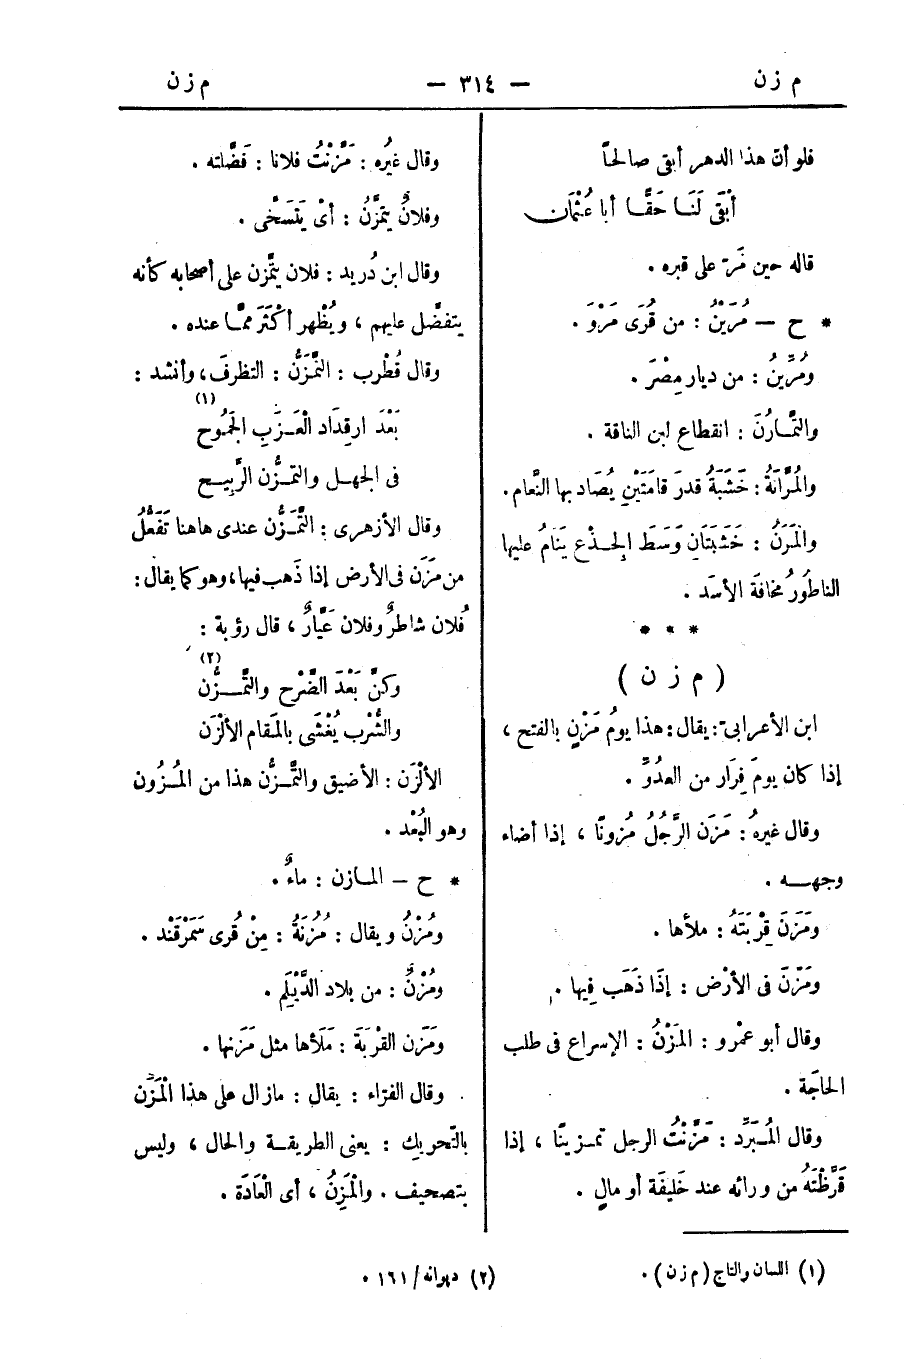 م زن — ٣١٤ — م زن
فلو أنّ هذا الدهر أبقى صالحاً
أبْقَى لَنَا حَقًّا أبا عُثْمَان
قاله حين مَرّ على قبره .
* ح — مُرَيْنُ : من قُرَى مَرْوَ .
ومُرِّينُ : من ديار مِصْرَ .
والتَّمَارُن : انقطاع لبن الناقة .
والمُرَّانَةُ : خَشَبَةُ قدرَ قامَتَيْنِ يُصَاد بها النَّعام .
والمَرَنُ : خَشَبَتَانِ وَسَطَ الجِذْعِ يَنَامُ عليها
الناطُورُ مخافَة الأسَد .
* * *
( م ز ن )
ابن الأعرابيّ : يقال : هذا يومُ مَزْنٍ بالفتح ،
إذا كان يومَ فِرَار من العدُوِّ .
وقال غيرهُ : مَزَن الرَّجُلُ مُزونًا ، إذا أضاء
وجهه .
ومَزَنَ قِرْبَتَهُ : ملأها .
ومَزّنَ فى الأرْض : إذَا ذَهَب فِيها .
وقال أبو عمْرو : المَزْنُ : الإسراع فى طلب
الحاجَة .
وقال المُبَرِّد : مَزَّنْتُ الرجل تمزينًا ، إذا
قَرَّظْتَهُ من ورائه عند خَلِيفَة أو مالٍ .
وقال غيرُه : مَزَّنْتُ فلانا : فَضَّلته .
وفلانٌ يَتَمَزَّنُ : أىْ يَتَسَخَّى .
وقال ابن دُريد : فلان يتمَّزن على أصحابه كأنه
يتفضَّل عليهم ، ويُظْهر أكْثَرَ ممَّا عنده .
وقال قُطْرب : التَّمَزُّنُ : التظرفَ، وأنشد :
بَعْدَ ارقِدَاد الْعَزَبِ الجَمُوح (١)
فى الجهل والتمزُّن الرَّبِيح
وقال الأزهرى : التَّمَزُّن عندى هاهنا تَفَعُّلُ
من مَزَن فى الأرض إذا ذَهب فيها، وهو كما يقال :
فُلان شاطرٌ وفلان عَيَّارٌ ، قال رؤبة :
وكنَّ بَعْدَ الضَّرْح والتَّمَزُّن (٢)
والشُّرْب يُغْشَى بالمَقام الألْزَن
الألْزَن : الأضيق والتَّمَزُّن هذا من المُزُون
وهو البُعْد .
* ح — المازن : ماءٌ .
ومُزْنُ ويقال : مُزْنَةُ : مِنْ قُرى سَمَرْقَنْد .
ومُزْنٌ : من بلاد الدَّيْلَم .
ومَزّن القرْبَةَ : مَلَأها مثل مَزَنها .
وقال الفرّاء : يقال : مازال على هذا الْمَزَن
بالتّحريك : يعنى الطريقة والحال ، وليس
بتصحيف . والْمَزِنُ ، أى الْعَادَة .
(١) اللسان والتاج (م زن) .
(٢) ديوانه / ١٦١ .